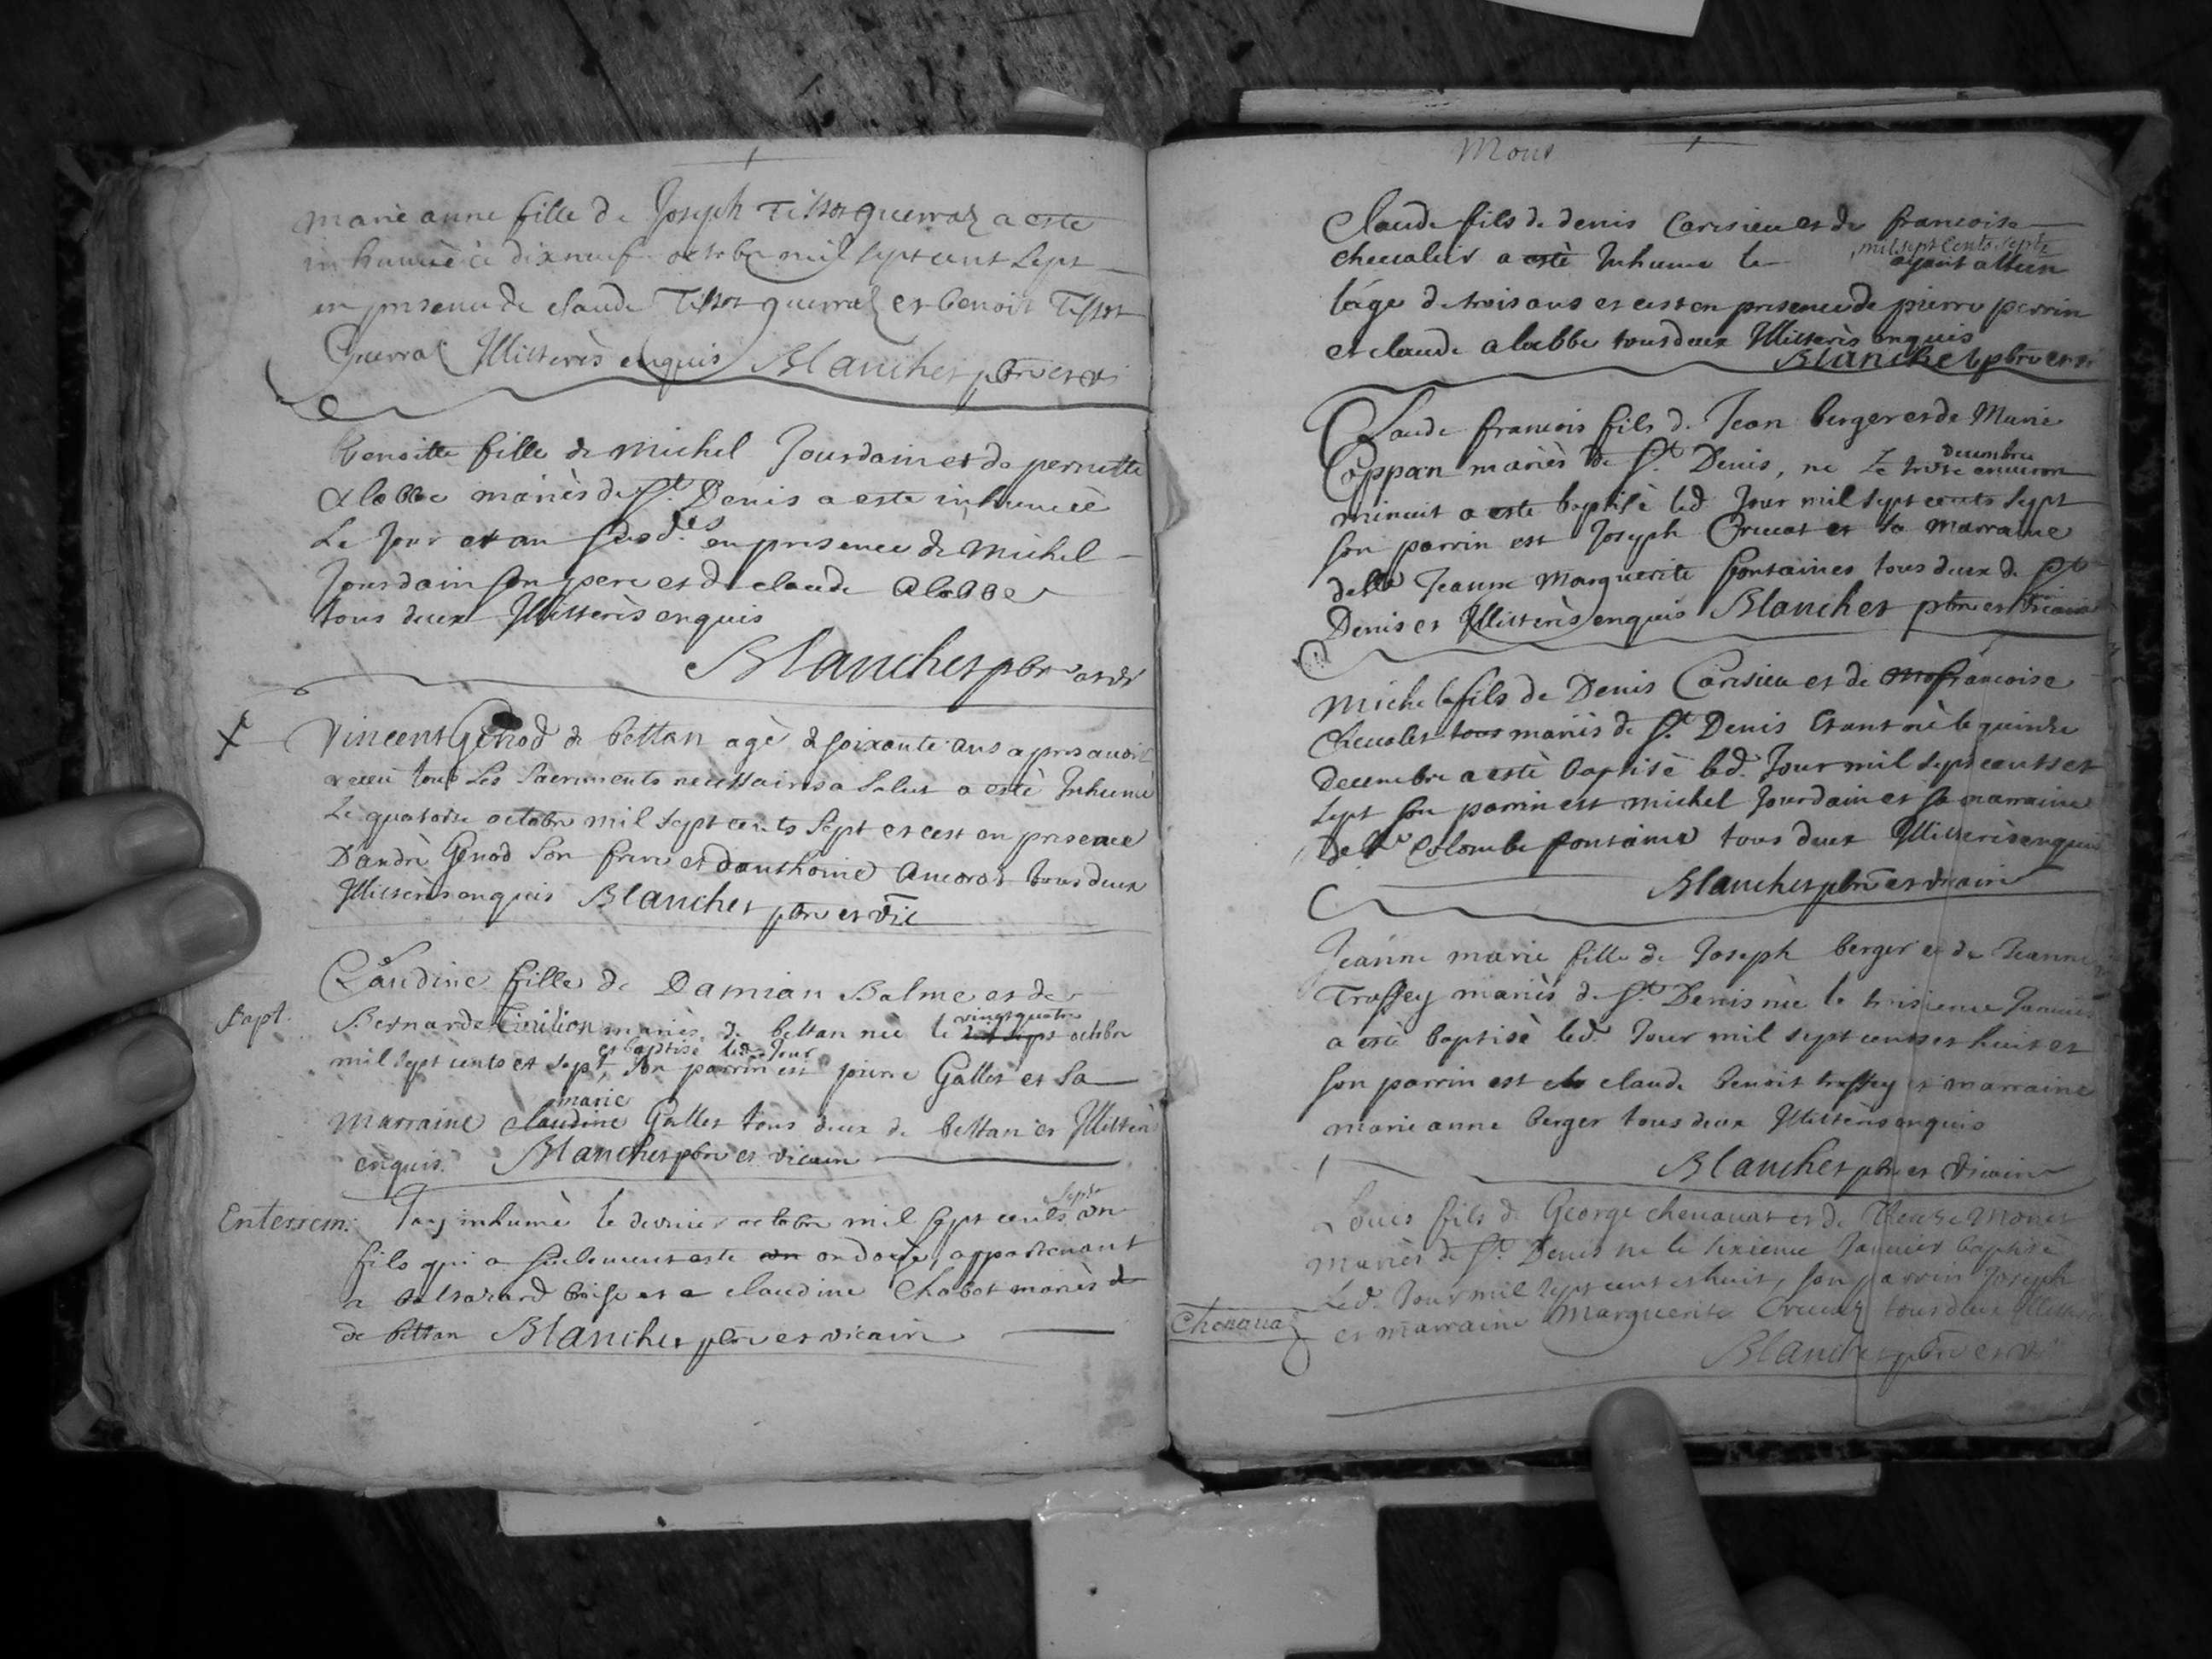 marie anne fille de Joseph Tissot guerraz a esté
inhumée le dixneuf octobre mil sept cent sept
en presence de claude Tissot guerraz et benoit Tissot
Guerraz Illiterés enquis Blanchet pbre et vi
Benoitte fille de michel Jourdain et de pernette
Alabbe mariés de St. Denis a esté inhumée
Le Jour et an susd. es en presence de michel
Jourdain son pere et de claude Alabbe
tous deux Illiterés enquis
Blanchet pbre et vi
Vincent Genod de bettan agé de soixante ans apres avoir
receu tous Les Sacrements necessaires a Salut a esté Inhumé
Le quatorze octobre mil sept cents sept et cest en presence
D'andré Genod son frere et d'anthoine Ancorot tous deux
Illiterés enquis Blanchet pbre et vic
Claudine fille de Damian Balme et de
Bapt. Bernarde mariés de bettan née le vingtquatre octobre
mil sept cents et sept, et baptisé led. Jour son parrin est pierre Gallet et sa
marraine claudine marie Gallet tous deux de bettan et Illiterés
enquis. Blanchet pbre et vicaire
Enterrem. Jay inhumé le dernier octobre mil sept cents septe un
fils qui a seulement esté un ondoyé, appartenant
a baltazard et a claudine Chabot mariés de
de bettan Blanchet pbre et vicaire
Mour
Claude fils de denis Carisieu et de francoise
chevalier a esté Inhumé le mil sept Cents septe ayant atteen
lage de trois ans et cest en presence de pierre perrin
et claude alabbe tous deux Illiterés enquis
Blanchet pbre et v
Claude francois fils de Jean berger et de Marie
Coppan mariés de St. Denis, ne Le treize decembre environ
minuit a esté baptisé led. Jour mil sept cents sept
son parrin est Joseph Crucat et sa marraine
delle Jeanne Marguerite fontaines tous deux de St
Denis et Illiterés enquis Blanchet pbre et vicaire
Michel fils de Denis Carisieu et de francoise
chevalet tous mariés de St. Denis Etant né le quinze
decembre a esté baptisé led. Jour mil sept cents et
sept son parrin est michel Jourdain et sa marraine
delle Colombe fontaine tous deux Illiterés enquis
Blanchet pbre et vicaire
Jeanne marie fille de Joseph berger et de Jeanne
Traffey mariés de St. Denis née le troisieme Janvier
a esté baptisé led. Jour mil sept cents et huit et
son parrin est claude benoit traffey et marraine
marie anne berger tous deux Illiterés enquis
Blanchet pbre et vicaire
Louis fils de George chenavat et de monet
mariés de St. Denis ne le sixieme Janvier baptisé
Led. Jour mil sept cent et huit, son parrin Joseph
Chenavaz et marraine Marguerite Crucaz tous deux
Blanchet pbre et v